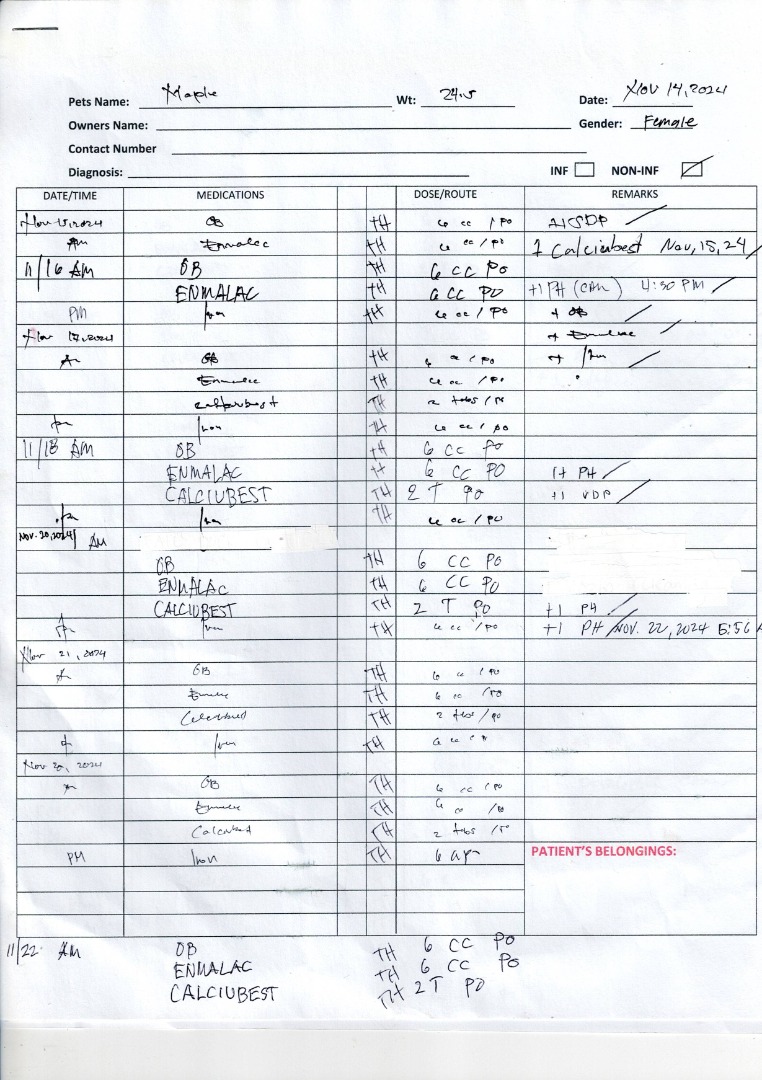 Pets Name: Maple Wt: 24.5 Date: Nov 14, 2024
Owners Name: Gender: Female
Contact Number
Diagnosis: INF NON-INF
DATE/TIME MEDICATIONS DOSE/ROUTE REMARKS
Nov 15, 2024 OB TH 6 cc / po
Am Enmalac TH 6 cc / po 1 Calciubest Nov, 15, 24
11/16 AM OB TH 6 CC PO
ENMALAC TH 6 CC PO +1 PH (CAN) 4:30 PM
PM Iron TH 6 cc / po + OB
Nov 17, 2024 + Enmalac
Am OB TH 6 cc / po + Iron
Enmalac TH 6 cc / po
TH 2 tabs / po
pm Iron TH 6 cc / po
11/18 AM OB TH 6 CC PO
ENMALAC TH 6 CC PO 1+ PH
CALCIUBEST TH 2 T PO +1 VDP
pm Iron TH 6 cc / po
Nov. 20, 2024 / AM
OB TH 6 CC PO
ENMALAC TH 6 CC PO
CALCIUBEST TH 2 T PO +1 PH
pm Iron TH 6 cc / po +1 PH NOV. 22, 2024 5:56 A
Nov 21, 2024
OB TH 6 cc / po
Enmalac TH 6 cc / po
Calciubest TH 2 tabs / po
Iron TH 6 cc
Nov 20, 2024
OB TH 6 cc / po
Enmalac TH 6 cc / po
Calciubest TH 2 tabs / po
PM Iron TH 6 PATIENT'S BELONGINGS:
11/22 AM OB TH 6 CC PO
ENMALAC TH 6 CC PO
CALCIUBEST TH 2 T PO